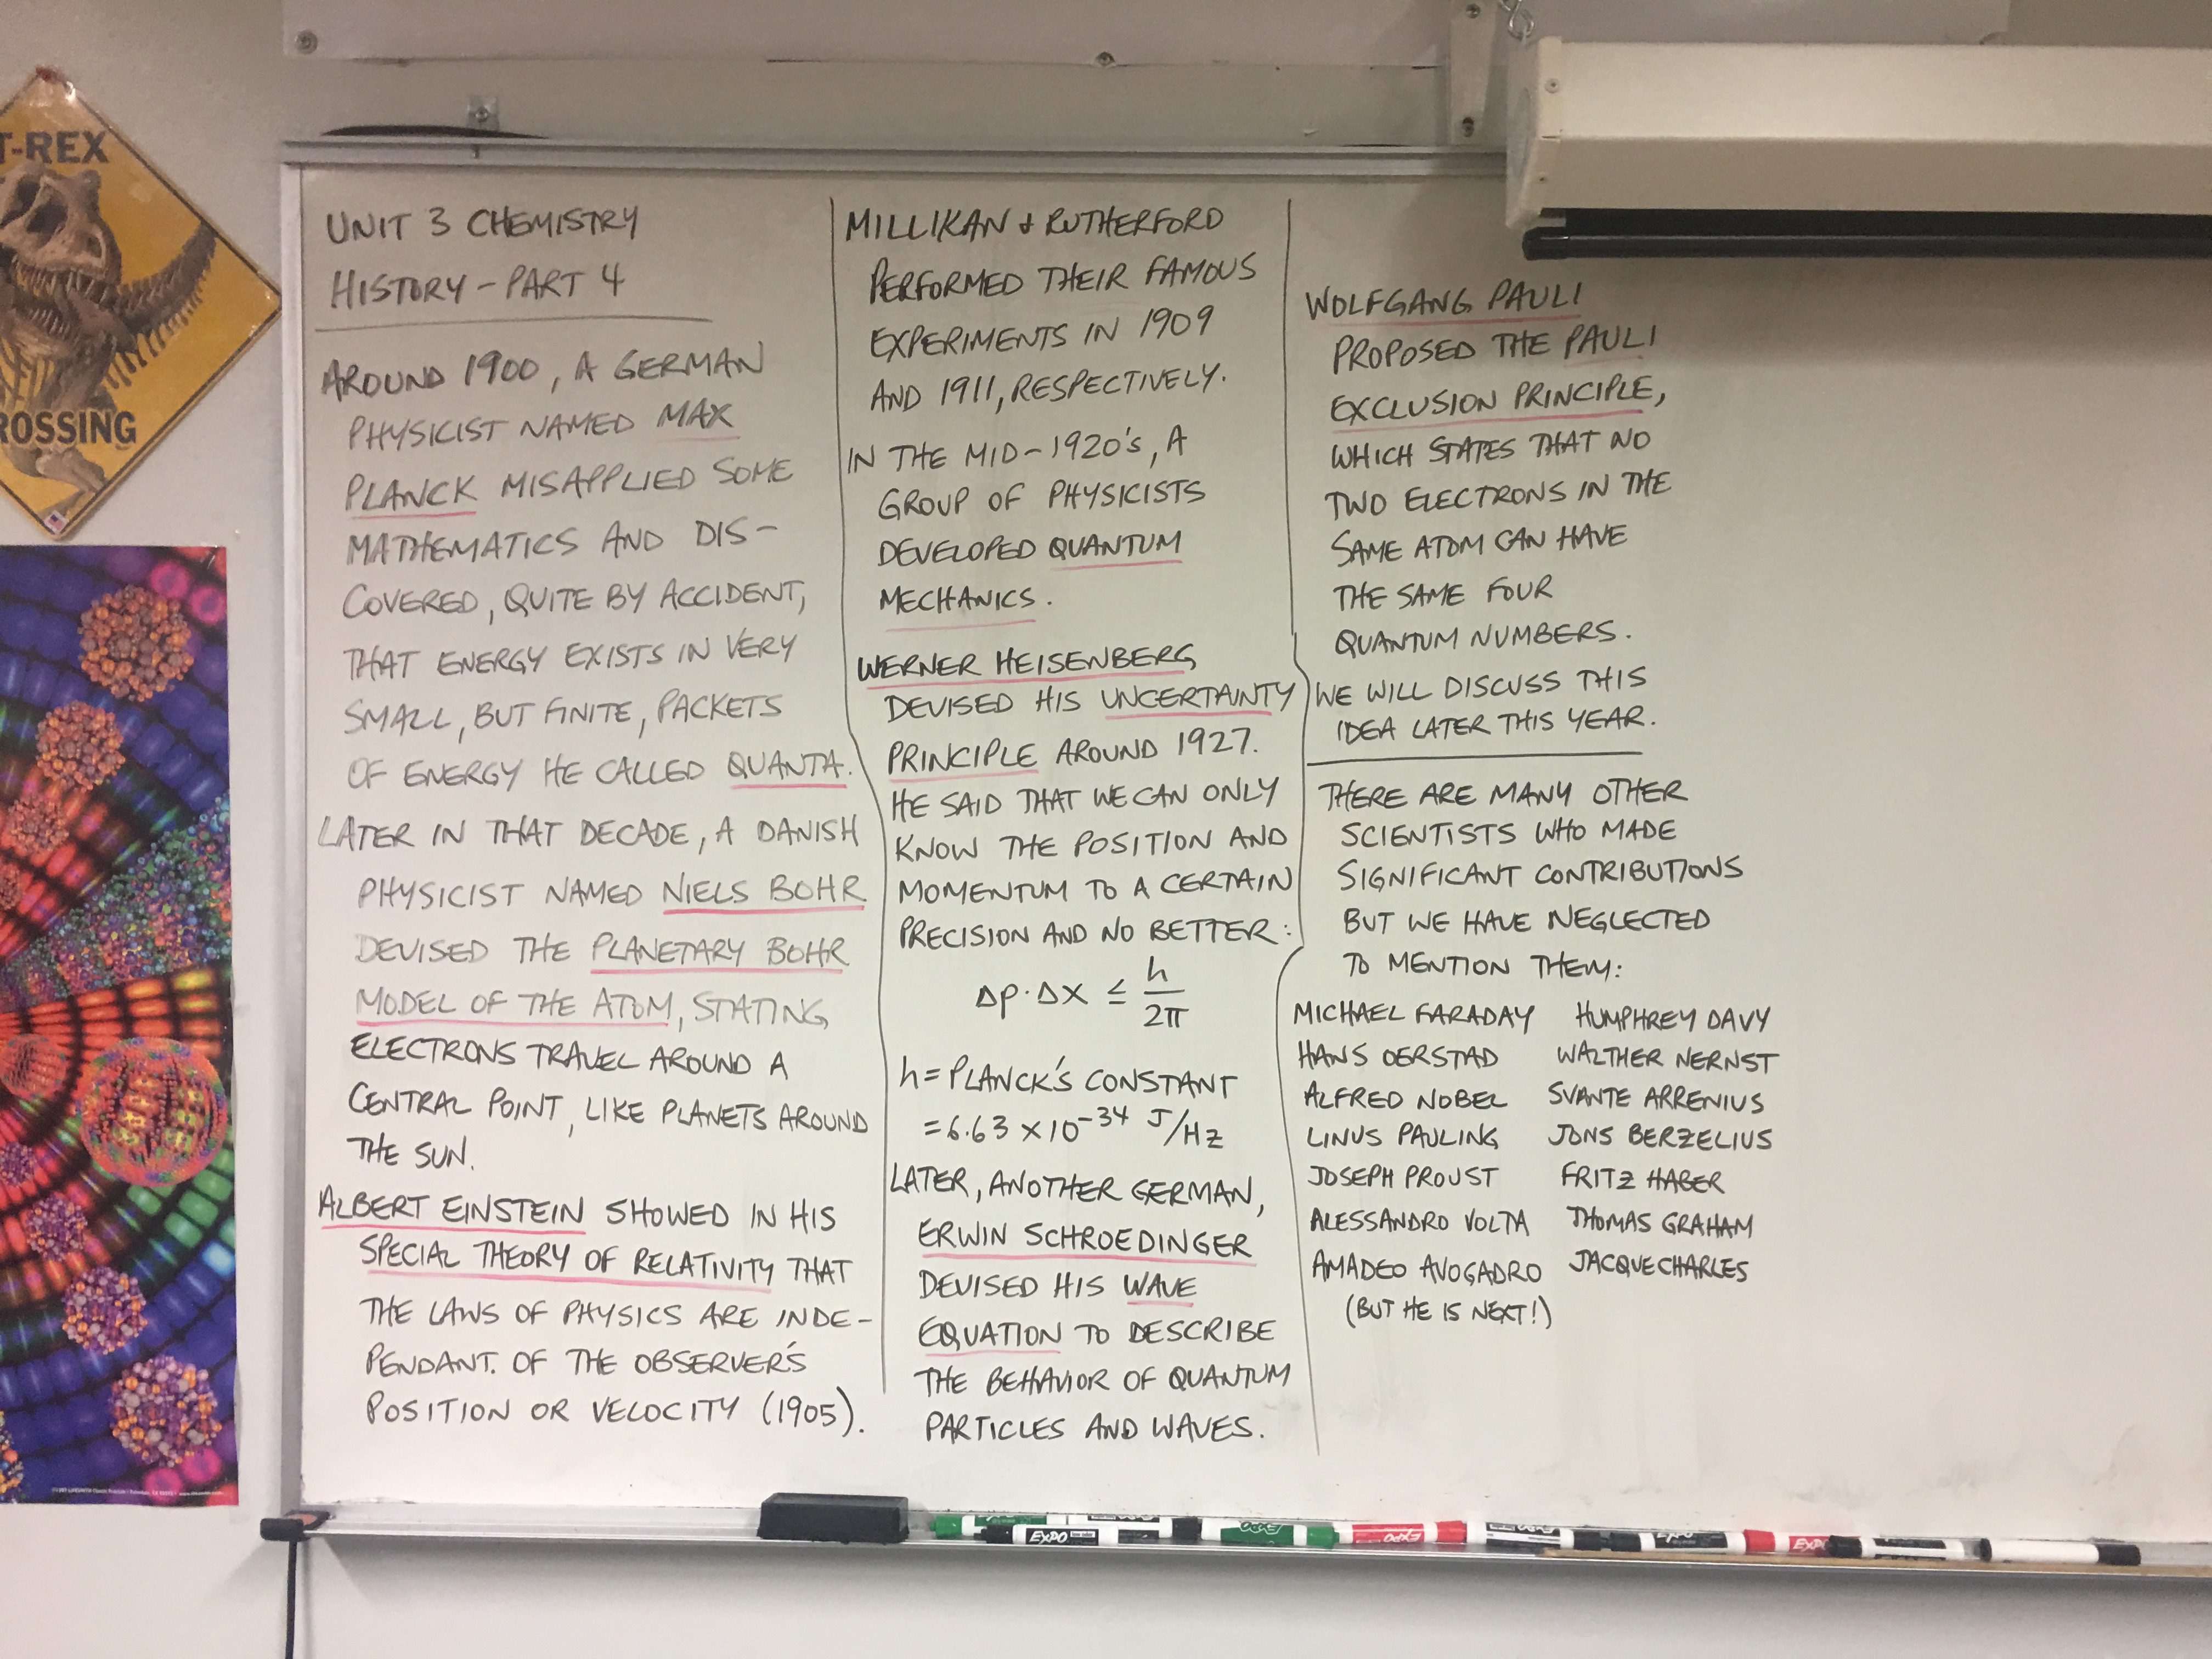 T-REX
ROSSING
UNIT 3 CHEMISTRY
HISTORY - PART 4
AROUND 1900, A GERMAN
PHYSICIST NAMED MAX
PLANCK MISAPPLIED SOME
MATHEMATICS AND DIS-
COVERED, QUITE BY ACCIDENT,
THAT ENERGY EXISTS IN VERY
SMALL, BUT FINITE, PACKETS
OF ENERGY HE CALLED QUANTA.
LATER IN THAT DECADE, A DANISH
PHYSICIST NAMED NIELS BOHR
DEVISED THE PLANETARY BOHR
MODEL OF THE ATOM, STATING
ELECTRONS TRAVEL AROUND A
CENTRAL POINT, LIKE PLANETS AROUND
THE SUN.
ALBERT EINSTEIN SHOWED IN HIS
SPECIAL THEORY OF RELATIVITY THAT
THE LAWS OF PHYSICS ARE INDE-
PENDANT. OF THE OBSERVER'S
POSITION OR VELOCITY (1905).
MILLIKAN & RUTHERFORD
PERFORMED THEIR FAMOUS
EXPERIMENTS IN 1909
AND 1911, RESPECTIVELY.
IN THE MID-1920's, A
GROUP OF PHYSICISTS
DEVELOPED QUANTUM
MECHANICS.
WERNER HEISENBERG
DEVISED HIS UNCERTAINTY
PRINCIPLE AROUND 1927.
HE SAID THAT WE CAN ONLY
KNOW THE POSITION AND
MOMENTUM TO A CERTAIN
PRECISION AND NO BETTER:
Δp·Δx ≤ h/2π
h = PLANCK'S CONSTANT
= 6.63 x 10⁻³⁴ J/Hz
LATER, ANOTHER GERMAN,
ERWIN SCHROEDINGER
DEVISED HIS WAVE
EQUATION TO DESCRIBE
THE BEHAVIOR OF QUANTUM
PARTICLES AND WAVES.
WOLFGANG PAULI
PROPOSED THE PAULI
EXCLUSION PRINCIPLE,
WHICH STATES THAT NO
TWO ELECTRONS IN THE
SAME ATOM CAN HAVE
THE SAME FOUR
QUANTUM NUMBERS.
WE WILL DISCUSS THIS
IDEA LATER THIS YEAR.
THERE ARE MANY OTHER
SCIENTISTS WHO MADE
SIGNIFICANT CONTRIBUTIONS
BUT WE HAVE NEGLECTED
TO MENTION THEM:
MICHAEL FARADAY HUMPHREY DAVY
HANS OERSTAD WALTHER NERNST
ALFRED NOBEL SVANTE ARRENIUS
LINUS PAULING JONS BERZELIUS
JOSEPH PROUST FRITZ HABER
ALESSANDRO VOLTA THOMAS GRAHAM
AMADEO AVOGADRO JACQUE CHARLES
(BUT HE IS NEXT!)
EXPO
EXPO
EXPO